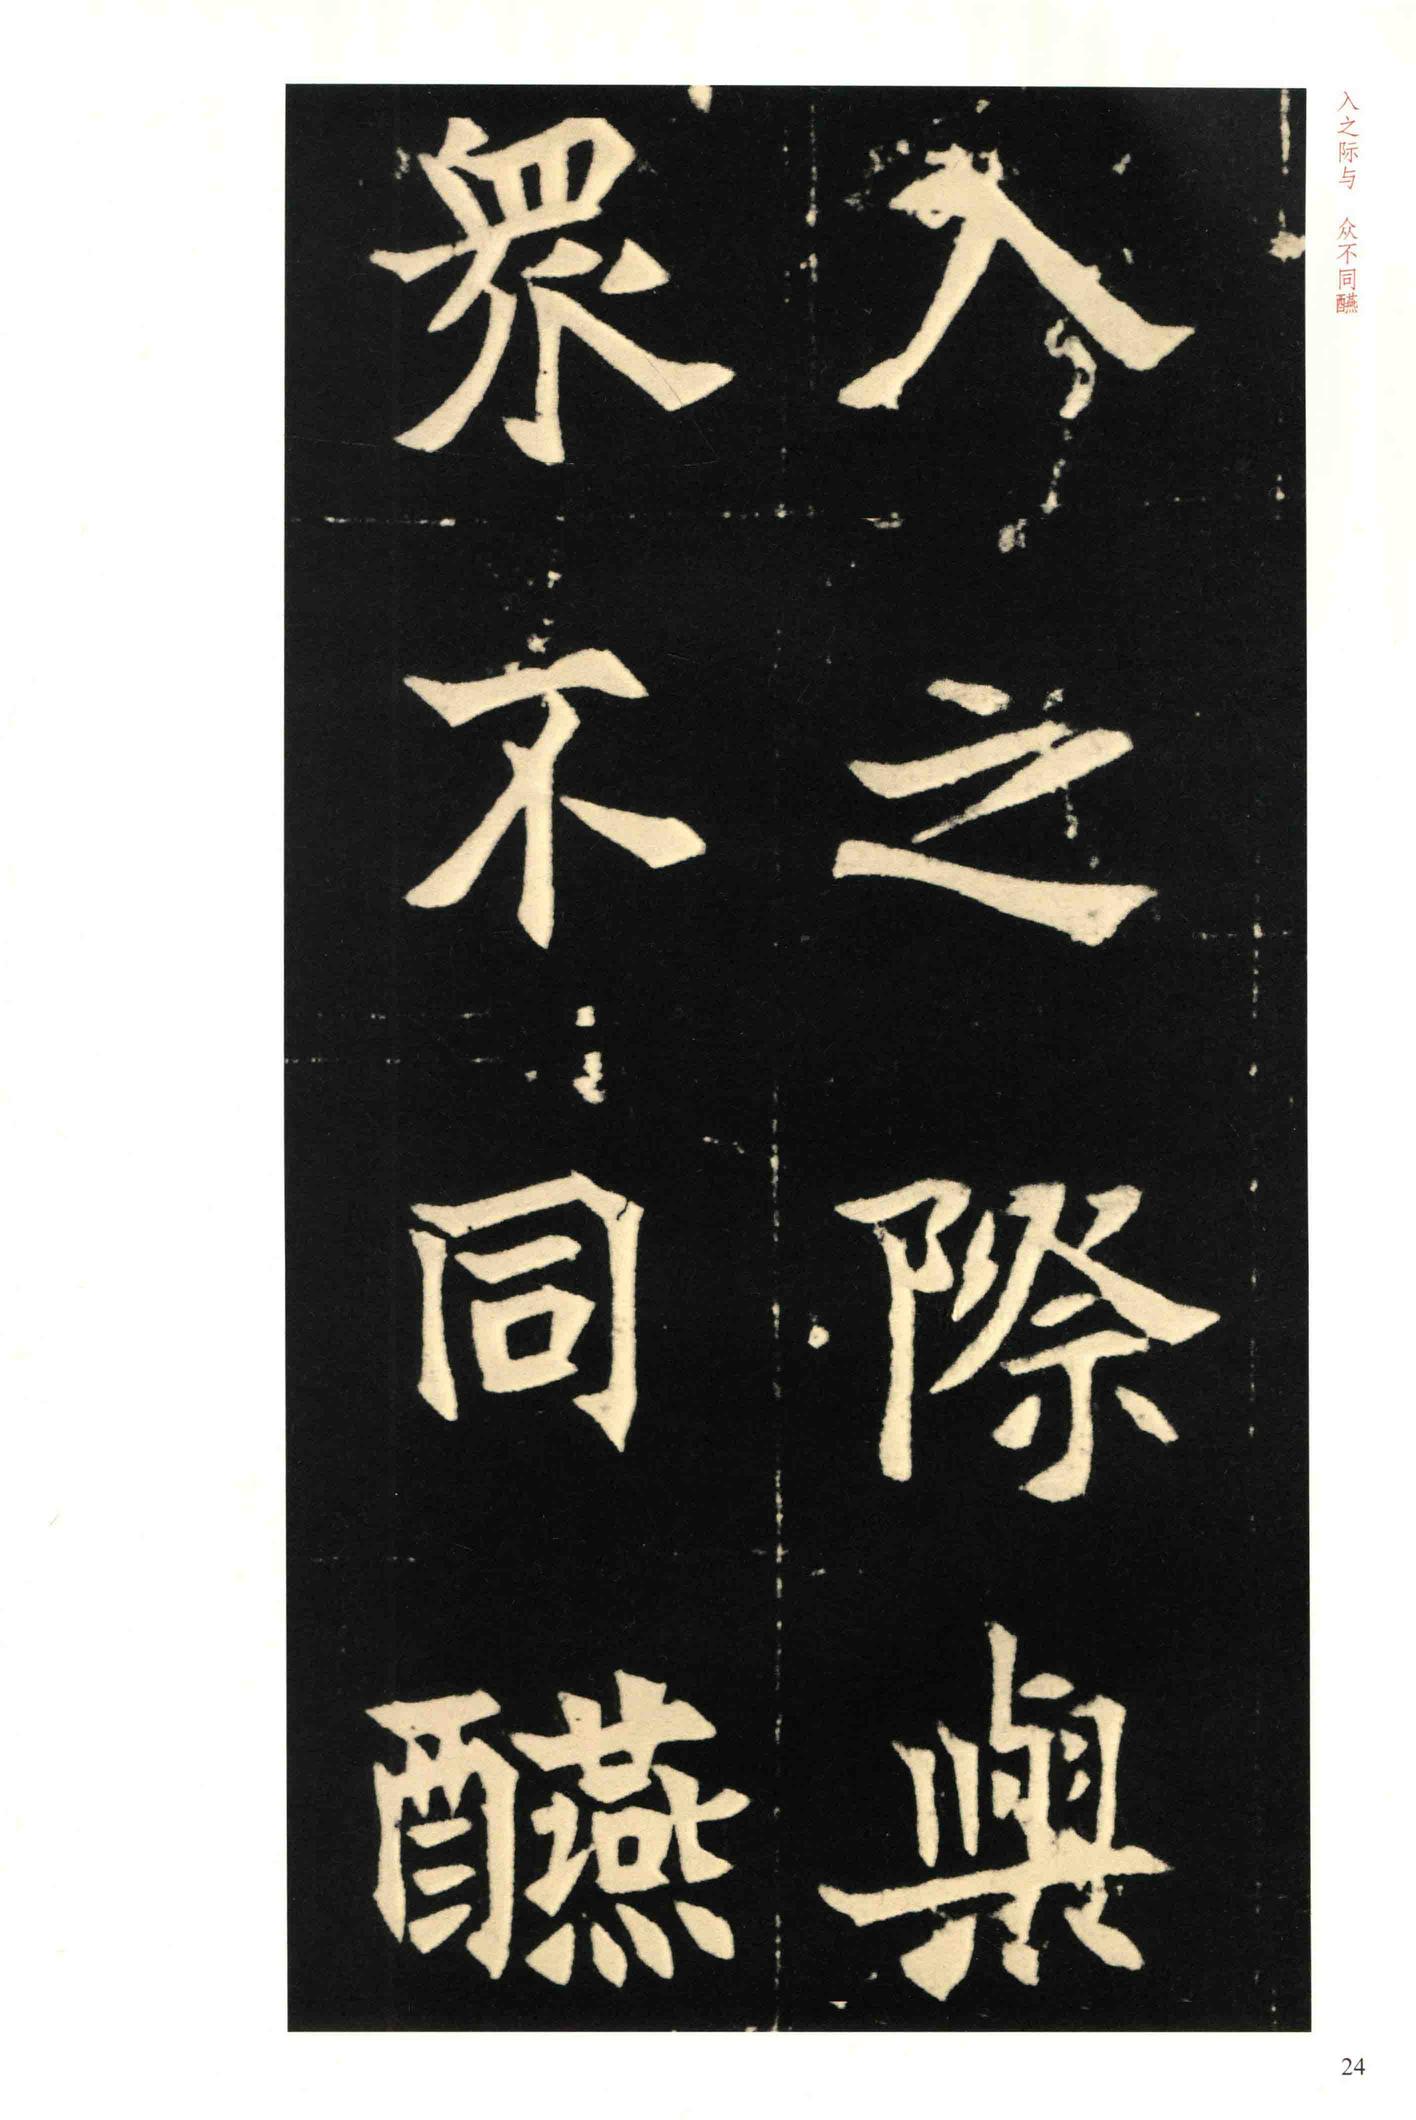 入之际与　众不同醼
入之際與
眾不同醼
24